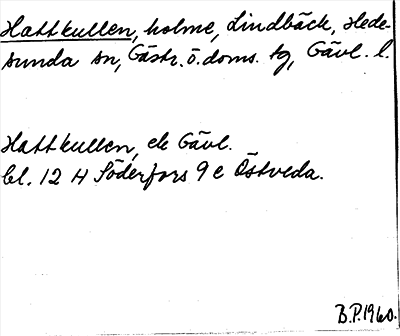 Hattkullen, holme, Lindbäck, Hede-
sunda sn, Gästr. ö. doms. tg, Gävl. l.
Hattkullen, ek Gävl.
bl. 12 H Söderfors 9 c Östveda.
B.P. 1960.